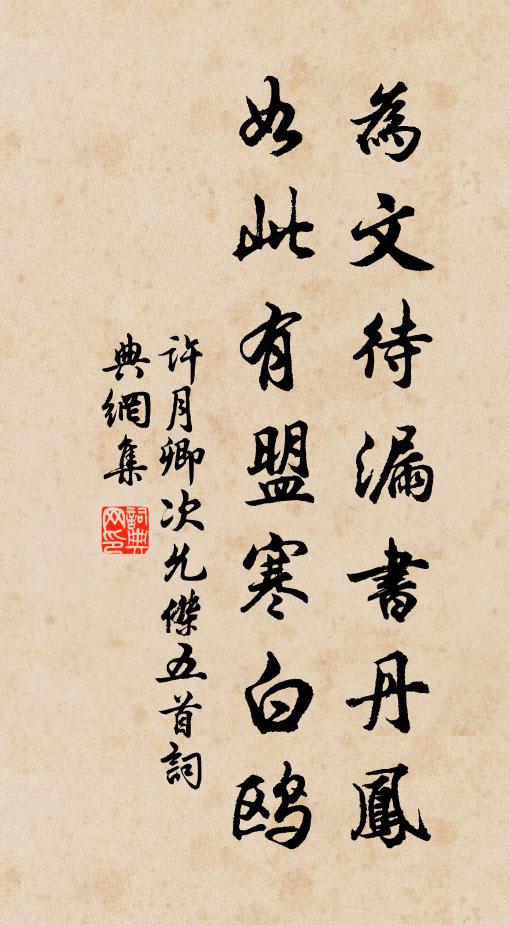 為文待漏書丹鳳
如此有盟寒白鷗
許月卿次允傑五首詞
典網集
詞典網印